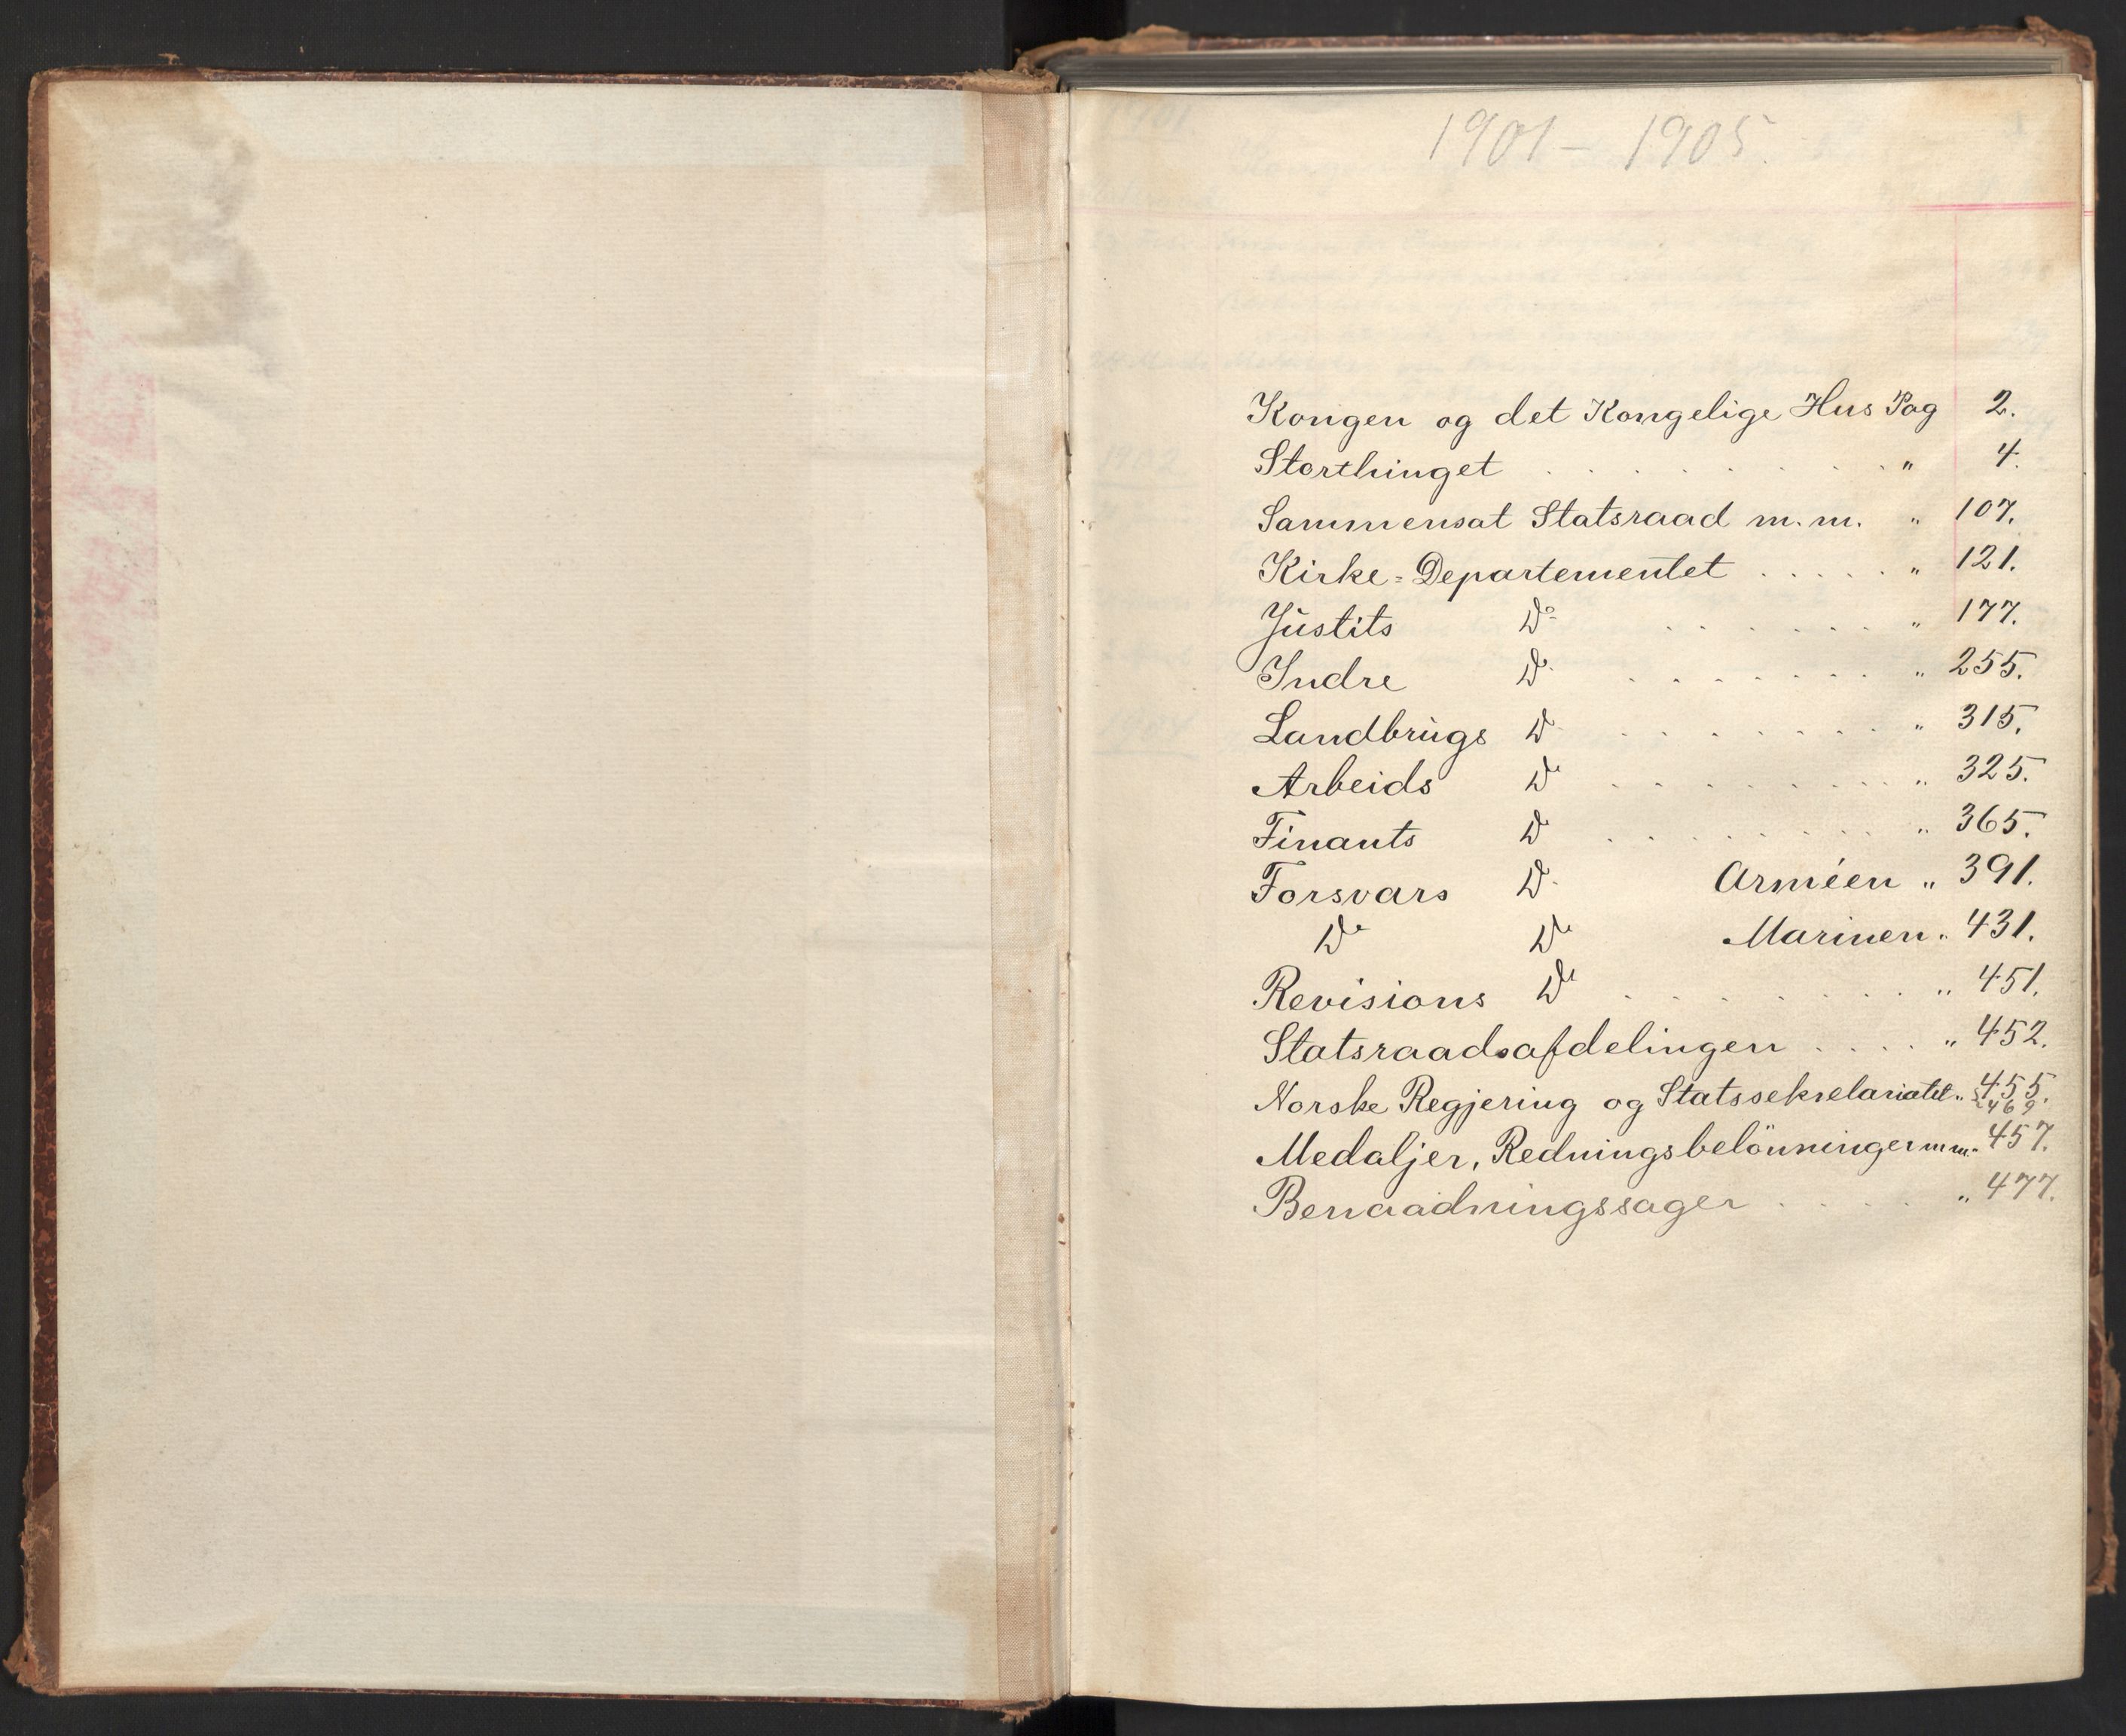 1901 – 1905.
Kongen og det Kongelige Hus Pag 2.
Storthinget . . . . . . . . . " 4.
Sammensat Statsraad m.m. " 107.
Kirke=Departementet . . . . . " 121.
Justits Do . . . . . . " 177.
Indre Do . . . . . . . " 255.
Landbrugs Do . . . . . . . . " 315.
Arbeids Do . . . . . . . . " 325.
Finants Do . . . . . . . . " 365.
Forsvars Do Arméen " 391.
Do Do Marinen " 431.
Revisions Do . . . . . . . . " 451.
Statsraadsafdelingen . . . . " 452.
Norske Regjering og Statssekretariatet " 455.
469
Medaljer, Redningsbelönninger m.m. " 457.
Benaadningssager . . . . . " 477.